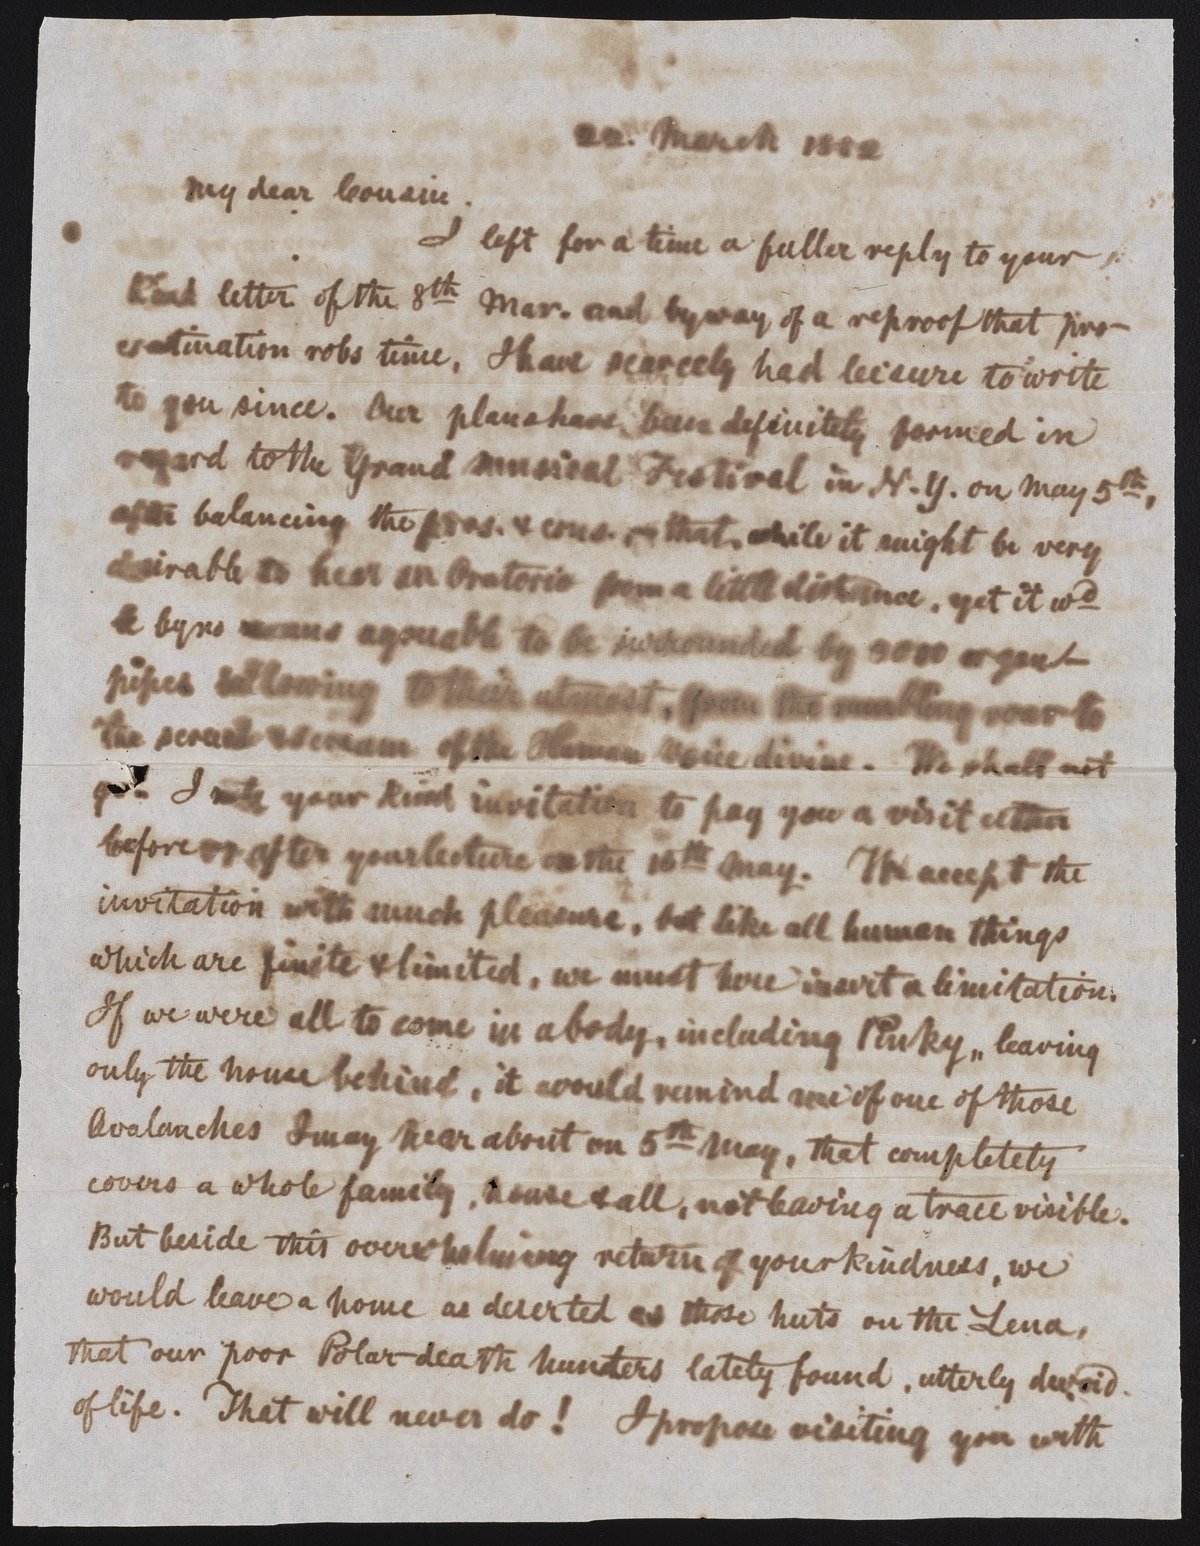 22. March 1882
My dear Cousin.
I left for a time a fuller reply to your
kind letter of the 8th Mar. and by way of a reproof that pro-
crastination robs time, I have scarcely had leisure to write
to you since. Our plans have been definitely formed in
regard to the Grand Musical Festival in N.Y. on May 5th,
after balancing the pros. & cons. – that, while it might be very
desirable to hear an Oratorio from a little distance, yet it wd
be by no means agreeable to be surrounded by 3000 organ-
pipes bellowing to their utmost, from the rumbling roar to
the screech & scream of the Human Voice divine. We shall not
go. I note your kind invitation to pay you a visit either
before or after your lecture on the 16th May. We accept the
invitation with much pleasure, but like all human things
which are finite & limited, we must here insert a limitation.
If we were all to come in a body, including Pinky,, leaving
only the house behind, it would remind me of one of those
Avalanches I may hear about on 5th May, that completely
covers a whole family, house & all, not leaving a trace visible.
But beside this overwhelming return of your kindness, we
would leave a home as deserted as those huts on the Lena,
that our poor Polar-death hunters lately found, utterly devoid
of life. That will never do! I propose visiting you with